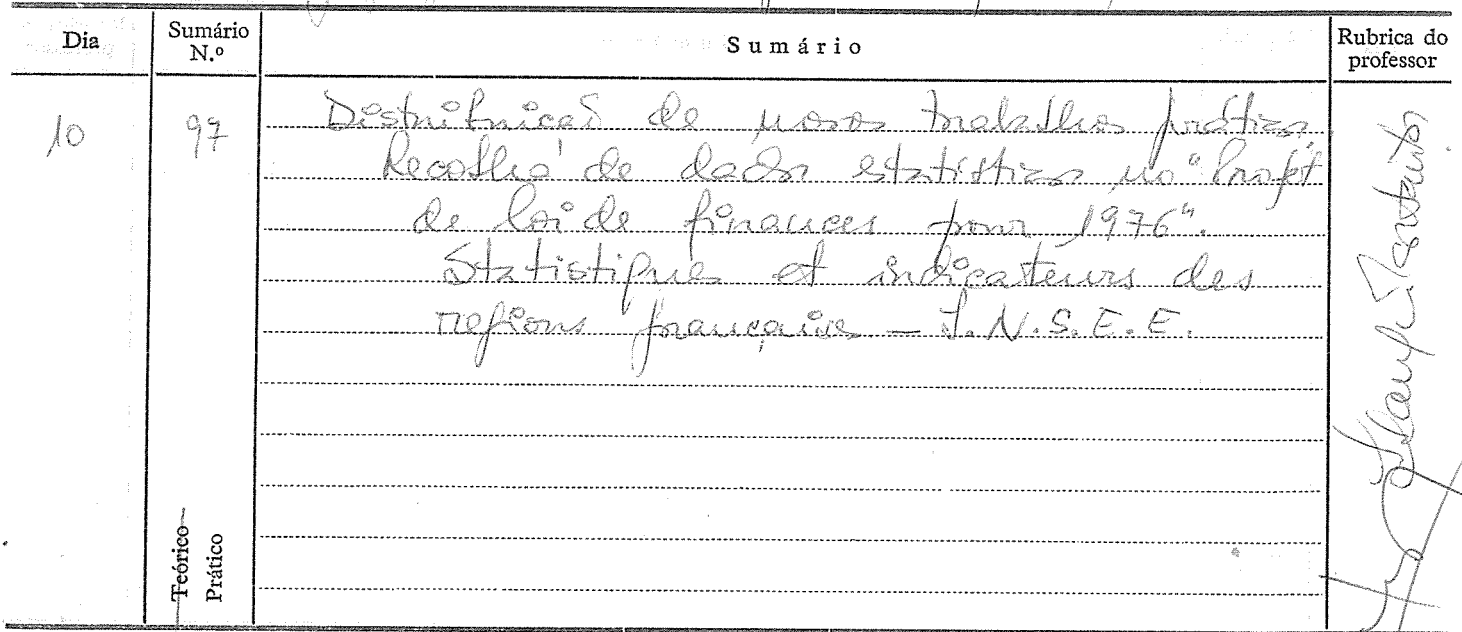 Dia
Sumário N.º
Sumário
Rubrica do professor
10
97
Distribuição de novos trabalhos práticos.
Recolha de dados estatísticos no "Projet
de loi de finances pour 1976".
Statistiques et indicateurs des
régions françaises – I.N.S.E.E.
Teórico
Prático